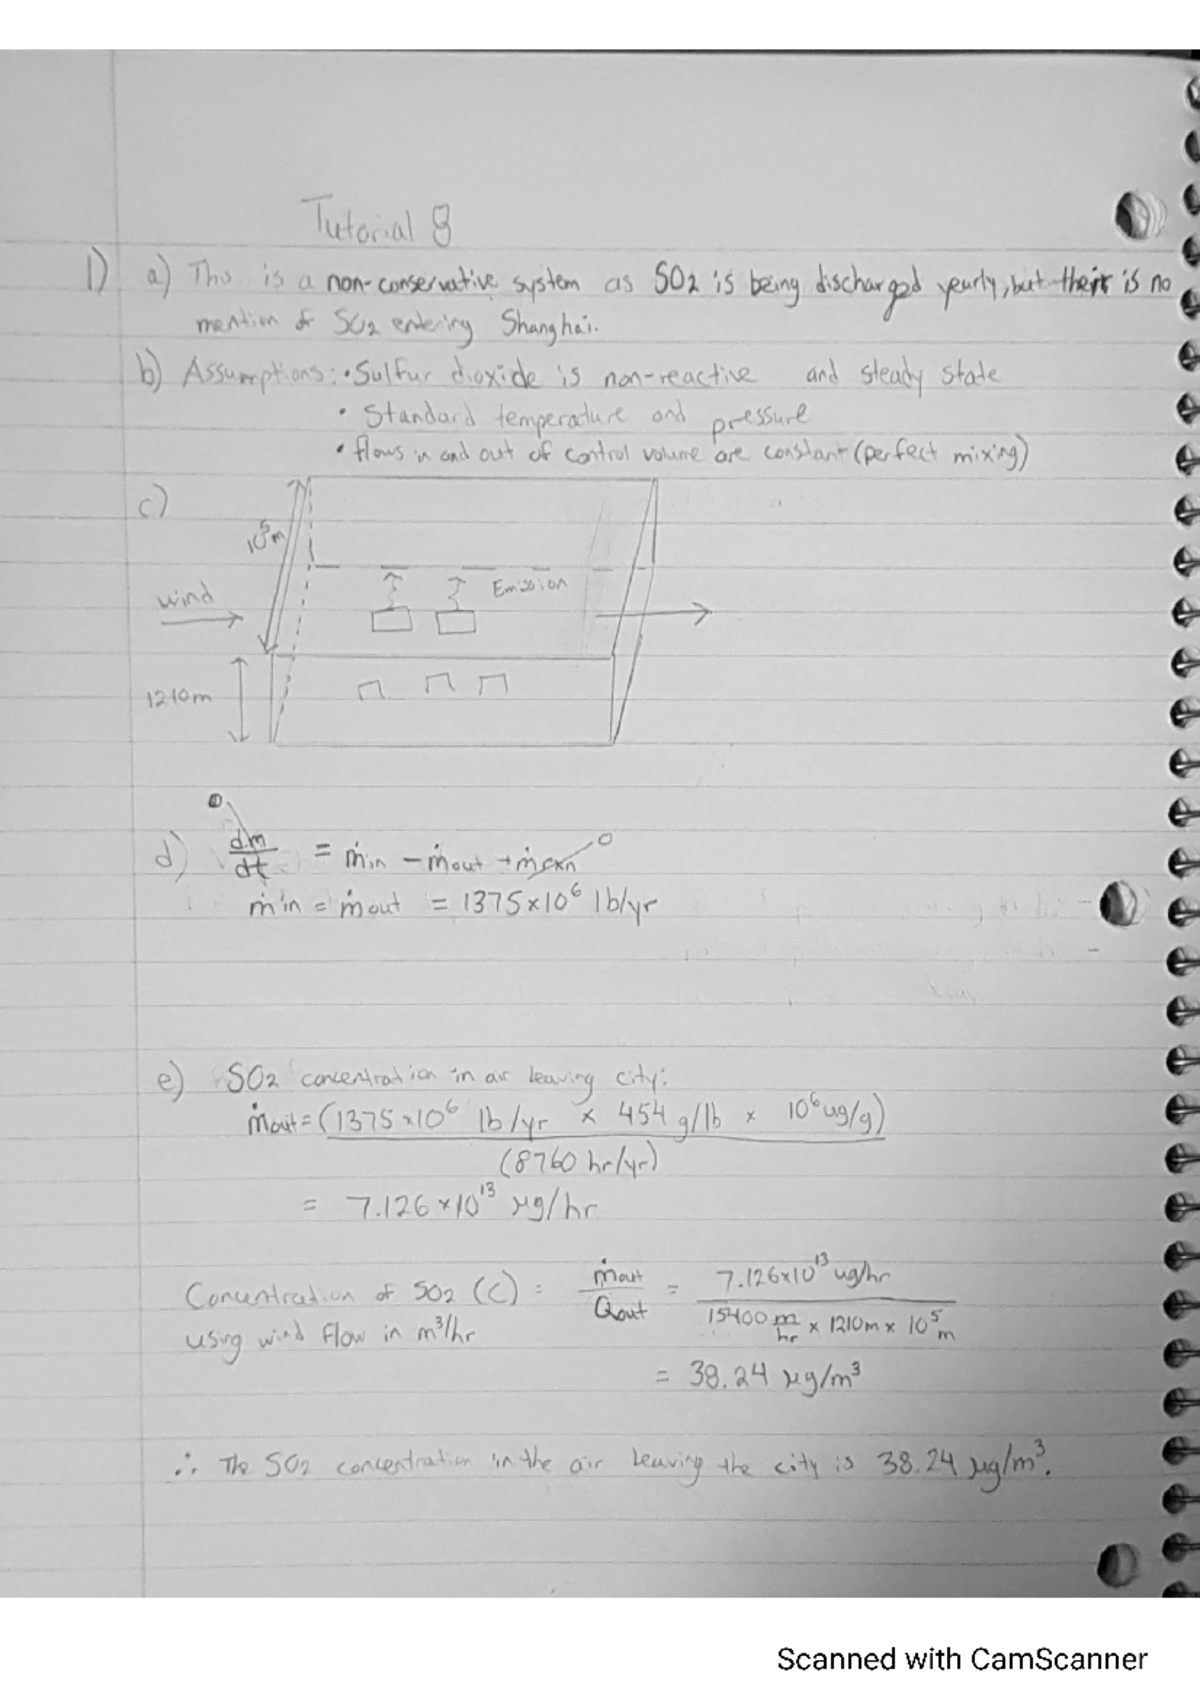 Tutorial 8
1) a) This is a non-conservative system as SO2 is being discharged yearly, but their is no
mention of SO2 entering Shanghai.
b) Assumptions: • Sulfur dioxide is non-reactive and steady state
• Standard temperature and pressure
• flows in and out of control volume are constant (perfect mixing)
c)
10⁵m
Emission
wind
1210m
0
d) dm/dt = ṁin - ṁout + ṁrxn 0
ṁin = ṁout = 1375×10⁶ lb/yr
e) SO2 concentration in air leaving city:
ṁout = (1375×10⁶ lb/yr × 454 g/lb × 10⁶ ug/g)
(8760 hr/yr)
= 7.126×10¹³ μg/hr
Concentration of SO2 (C) = ṁout/Qout = 7.126×10¹³ ug/hr
using wind flow in m³/hr 15400 m/hr × 1210m × 10⁵ m
= 38.24 μg/m³
∴ The SO2 concentration in the air leaving the city is 38.24 μg/m³.
Scanned with CamScanner